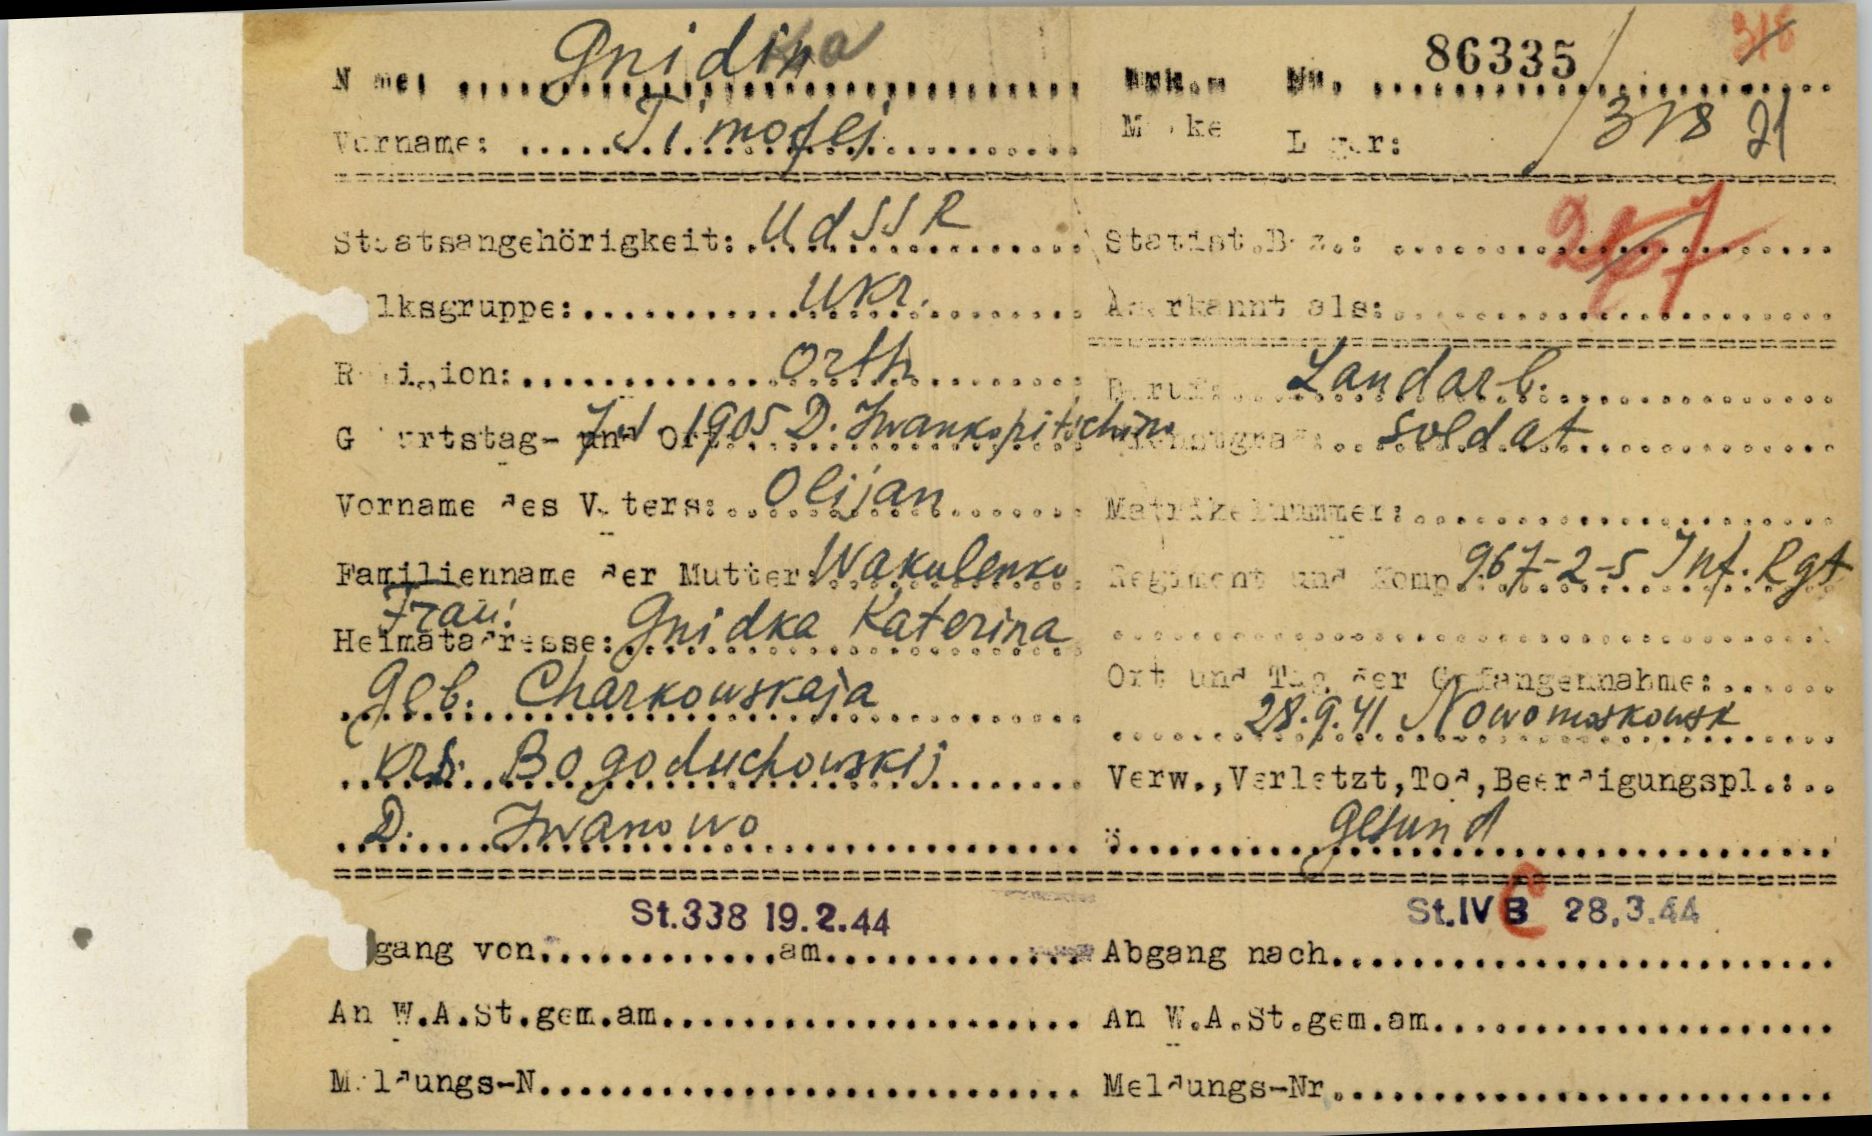 Name: Gnidin ka Erk.m Nr. 86335 / 318
Vorname: Timofej Marke Lager: 318 21
Staatsangehörigkeit: UdSSR Statist.Bez.: 267
Volksgruppe: ukr. Anerkannt als:
Religion: orth Beruf: Landarb.
Geburtstag- und Ort: 1905 D. Dienstgrad: soldat
Vorname des Vaters: Olijan Matrikelnummer:
Familienname der Mutter: Wakulenko Regiment und Komp.: 967-2-5 Inf. Rgt
Frau:
Heimatadresse: Gnidka Katerina
geb. Charkowskaja Ort und Tag der Gefangennahme:
28.9.41 Nowomoskowsk
Krs. Bogoduchowskij Verw.,Verletzt,Tod,Beerdigungspl.:
D. Iwanowo gesund
St.338 19.2.44 St.IV B C 28.3.44
gang von am Abgang nach
An W.A.St.gem.am An W.A.St.gem.am
Meldungs-N Meldungs-Nr.